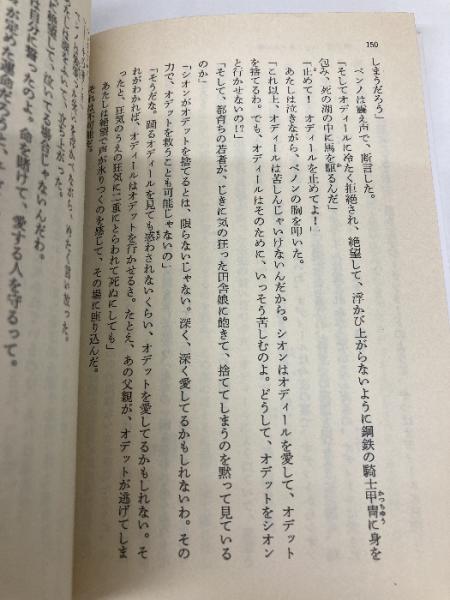 150
しまうだろう」
ベンノは震え声で、断言した。
「そしてオディールに冷たく拒絶され、絶望して、浮かび上がらないように鋼鉄の騎士甲冑に身を
包み、死の湖の中に馬を駆るんだ」
「止めて! オディールを止めてよ!」
あたしは泣きながら、ベンノの胸を叩いた。
「これ以上、オディールは苦しんじゃいけないんだから。シオンはオディールを愛して、オデット
を捨てるわ。でも、オディールはそのために、いっそう苦しむのよ。どうして、オデットをシオン
と行かせないの!?」
「そして、都育ちの若者が、じきに気の狂った田舎娘に飽きて、捨ててしまうのを黙って見ている
のか」
「シオンがオデットを捨てるとは、限らないじゃない。深く、深く愛してるかもしれないわ。その
力で、オデットを救うことも可能じゃないの」
「そうだな。踊るオディールを見ても惑わされないくらい、オデットを愛してるかもしれない。そ
れがわかれば、オディールはオデットを行かせるさ。たとえ、あの父親が、オデットが逃げてしま
ったと、狂気のうえの狂気に二重にとらわれて死ぬにしても」
あたしは絶望で声が氷りつくのを感じて、その場に座り込んだ。
それは不可能だ。
立ち上がった。
絶望して、泣いてる場合じゃないんだわ。
は自分に誓ったのよ、命を賭けて、愛する人を守るって。